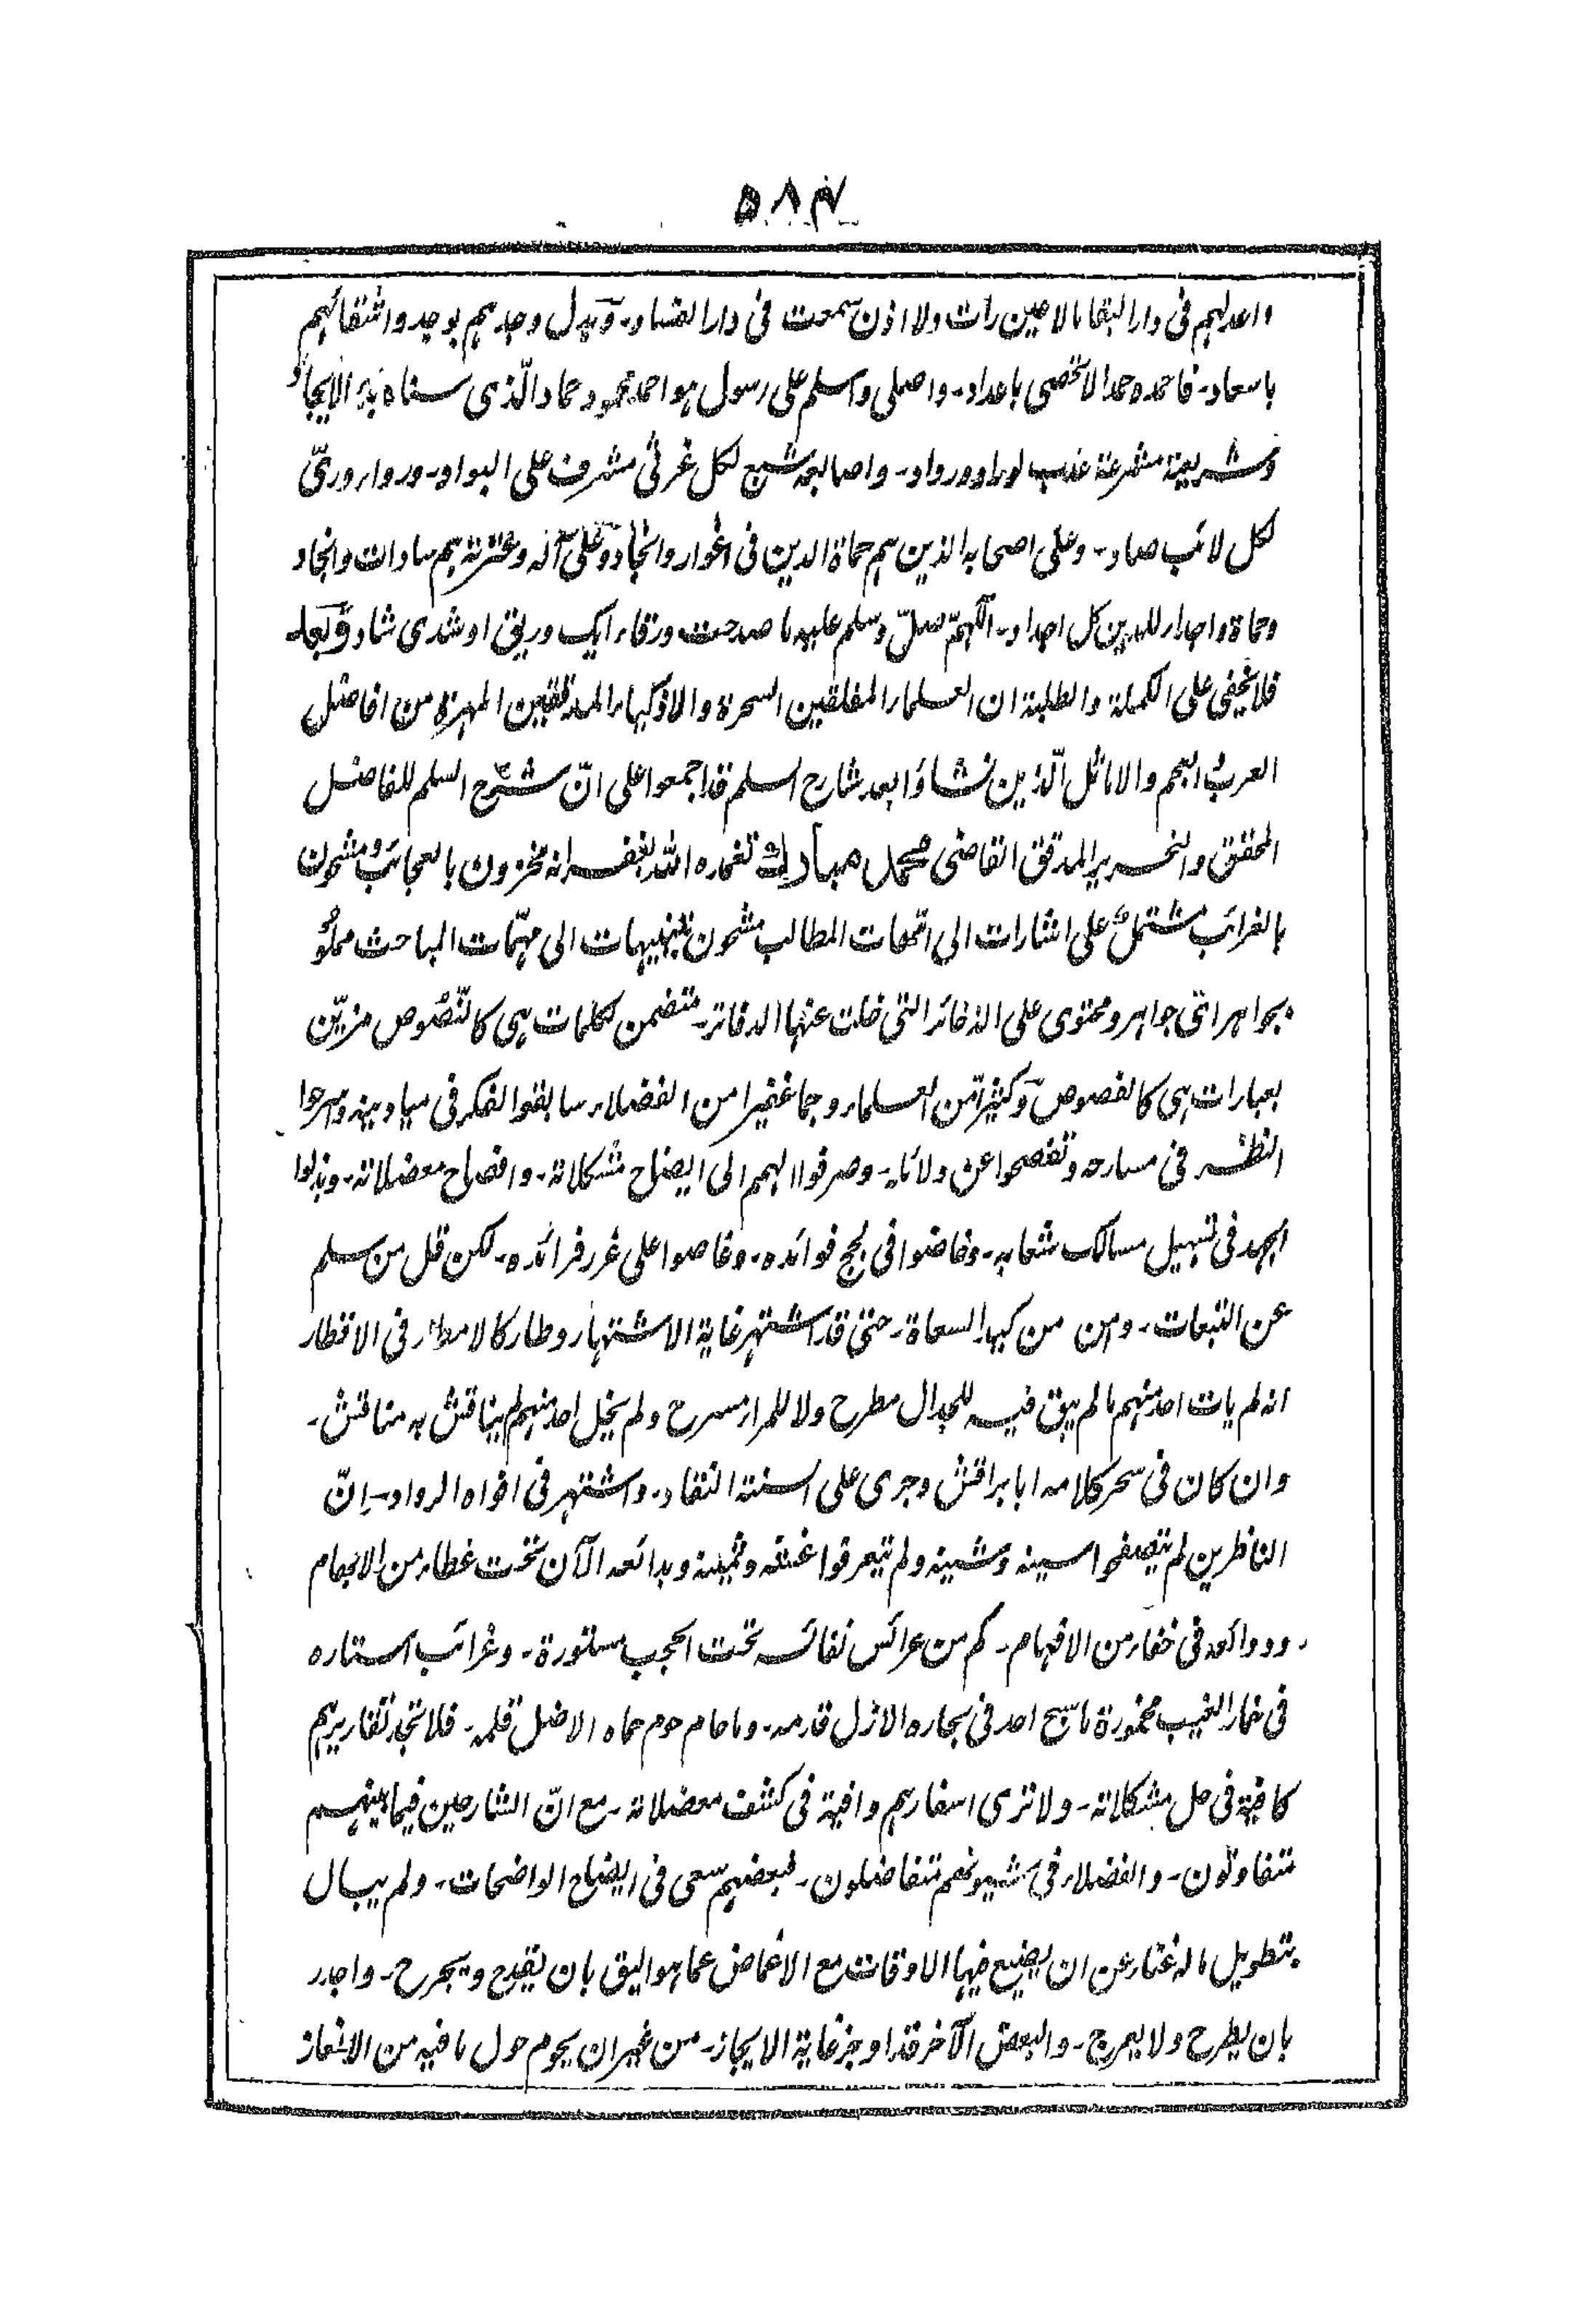 ۵۸۴
واعد لہم فی دار البقا مالا عین رات ولا اذن سمعت فی دار الفساد۔ وبدل وجدہم بوجد واشقائہم
باسعاد۔ فاحمدہ حمدا لا تحصی باعداد۔ واصلی واسلم علی رسول ہو احمد محمود حماد الّذی سناہ بذر الایجاد
وشریعۃ مشرعۃ عذب لوراد ورواد۔ واصابعہ شبع لکل غرثی مشرف علی البواد۔ ورواء وریّ
لکل لائب صاد۔ وعلی اصحابہ الذین ہم حماۃ الدین فی اغوار وانجاد وعلی آلہ وعترتہ ہم سادات وانجاد
وحماۃ واجدار للدین کل اجداد۔ اللّٰہمّ صلّ وسلم علیہ ما صدحت ورقاء ایک وریق اوشدی شاد وبعد
فلا یخفی علی الکملۃ والطلبۃ ان العلماء المفلقین السحرۃ والاذکیاء المدققین المہرۃ من افاضل
العرب والعجم والاماثل الّذین نشاؤا بعد شارح السلم قد اجمعوا علی انّ شرح السلم للفاضل
المحقق والنحریر المدقق القاضی محمد مبارک تغمدہ اللہ بغفرانہ مخزون بالعجائب ومشحون
بالغرائب مشتمل علی اشارات الی امّہات المطالب مشحون بتنبیہات الی مہمّات المباحث مملوّ
بجواہر اتی جواہر ومحتوی علی الذخائر التی خلت عنہا الدفاتر۔ متضمن لکلمات ہی کالنّصوص مزیّن
بعبارات ہی کالفصوص وکثیرا من العلماء وجما غفیرا من الفضلاء سابقوا الفکر فی میادینہ وسرحوا
النظر فی مسارحہ وتفصحوا عن ولائہ۔ وصرفوا الہمم الی ایضاح مشکلاتہ۔ وافصاح معضلاتہ۔ وبذلوا
الجہد فی تسہیل مسالک شعابہ۔ وخاضوا فی لجج فوائدہ۔ وغاصوا علی غرر فرائدہ۔ لکن قل من سلم
عن التبعات۔ وامن من کبہ السعاۃ۔ حتی قد اشتہر غایۃ الاشتہار وطار کالامطار فی الاقطار
انہ لم یات احد منہم ما لم یبق فیہ للجدال مطرح ولا للمراء مسرح ولم یخل احد منہم لم یناقش بہ مناقش۔
وان کان فی سحر کلامہ ابا براقش وجری علی السنۃ النقاد۔ واشتہر فی افواہ الرواد۔ انّ
الناظرین لم یتصفحوا سینہ وشینہ ولم یتعرفوا غثہ وثمینہ وبدائعہ الآن تحت غطاء من الابہام
۔ وودائعہ فی خفاء من الافہام۔ کم من عرائس نفائسہ تحت الحجب مستورۃ۔ وغرائب استارہ
فی خمار الغیب مخمورۃ ما سبح احد فی بحارہ الا زل قدمہ۔ وما حام حوم حماہ الا ضل قلمہ۔ فلا تجد تقاریرہم
کافیۃ فی حل مشکلاتہ۔ ولا تری اسفارہم وافیۃ فی کشف معضلاتہ۔ مع انّ الشارحین فیما بینہم
متفاوتون۔ والفضلاء فی شیونہم متفاضلون۔ فبعضہم سعی فی ایضاح الواضحات۔ ولم یبال
بتطویل ما لہ غناء عن ان یضیع فیہا الاوقات مع الاغماض عما ہو الیق بان یقدح ویجرح۔ واجدر
بان یطرح ولا یمرج۔ والبعض الآخر قد اوجز غایۃ الایجاز۔ من غیر ان یحوم حول ما فیہ من الالغاز